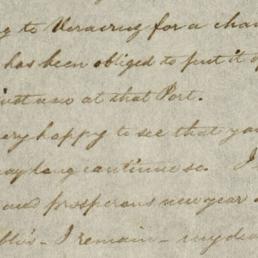 to Veracruz for a chan
has been obliged to put it o
just now at that Port.
very happy to see that you
may long continue so. I
and prosperous new year
I remain - my dea